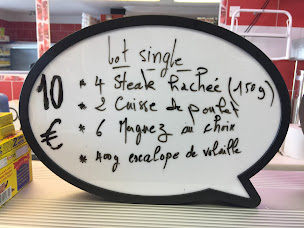 Lot single
10 €
* 4 Steak hachée (150g)
* 2 Cuisse de poulet
* 6 Merguez au choix
* 400g escalope de volaille